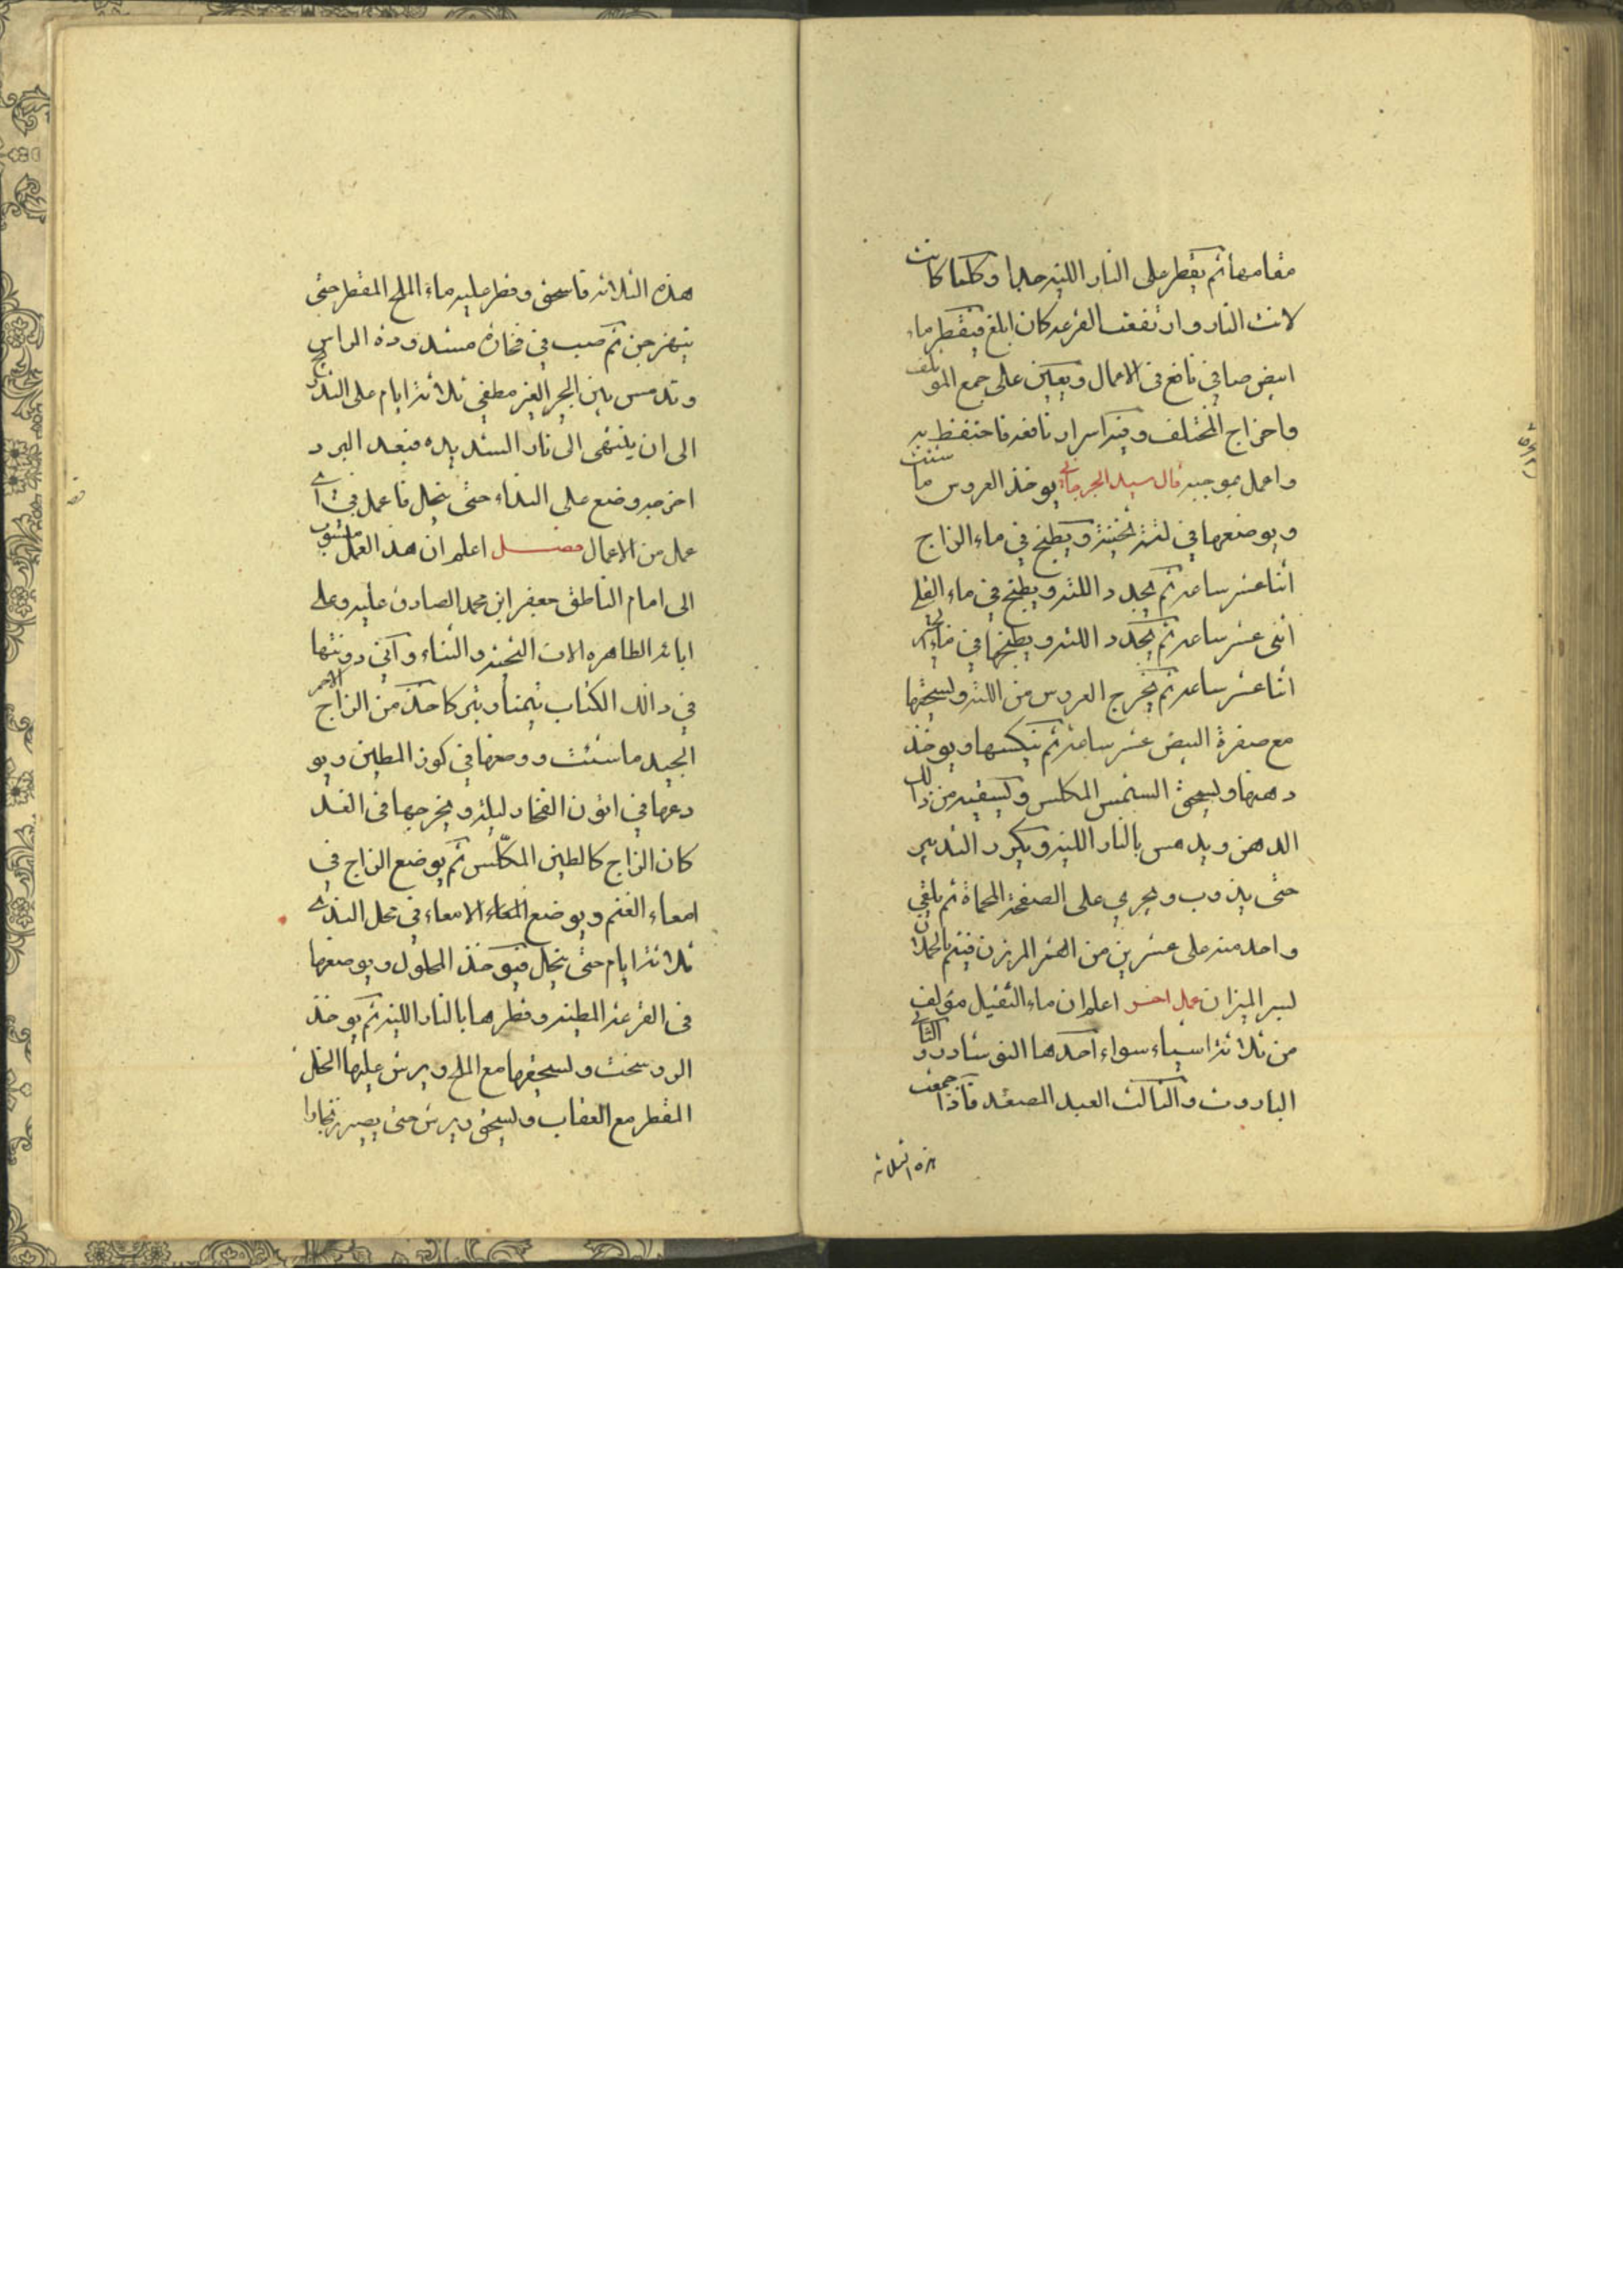 مقامها ثم يقطر على النار اللينه جدا وكلما كانت
لانت النار وارتفعت القرعه كان ابلغ فيقطر ماء
ابيض صافي نافع فى الاعمال ويعين على جمع المؤتلف
واخراج المختلف وفيه اسرار نافعه فاحتفظ به
واعمل بموجبه قال سيد الجرجاني يوخذ العروس ما شئت
ويوضعها في لته ثخينة ويطبخ في ماء الزاج
اثنا عشر ساعه ثم يجدد اللته ويطبخ في ماء القلي
اثنى عشر ساعه ثم يجدد اللته ويطبخها في ماء
اثنا عشر ساعه ثم يخرج العروس من اللته ويسحقها
مع صفرة البيض عشر ساعة ثم ينكسها ويوخذ
دهنها ويسحق الشمس المكلس ويسقيه من ذالك
الدهن ويدمس بالنار اللينه ويكرر التدبير
حتى يذوب ويجري على الصفحة المحماة ثم يلقي
واحد منه على عشرين من القمر المرزن فيتم بالحملان
لسر الميزان عمل اخر اعلم ان ماء الثقيل مؤلف
من ثلاثة اشياء سواء احدها النوشادر و الثاني
البارود والثالث العبد المصعد فاذا جمعت
هذه الثلاثه
هذه الثلاثه فاسحق وقطر عليه ماء الملح المقطر حتى
يتهزجن ثم صب في فخارة مسدودة الراس
وتدمس بين الجمر الغير مطفي ثلاثة ايام على التدريج
الى ان ينتهى الى نار الشديده فبعد البرد
اخرجه وضع على النداء حتى ينحل فاعمل في اي
عمل من الاعمال فصل اعلم ان هذا العمل منسوب
الى امام الناطق جعفر ابن محمد الصادق عليه وعلى
ابائه الطاهره الاف التحية والثناء وآني دونتها
في ذالك الكتاب تيمنا وتبركا خذ من الزاج الاحمر
الجيد ما شئت ووضعها في كوز المطين ويو
دعها في اتون الفخار ليلة ويخرجها فى الغد
كان الزاج كالطين المكلّس ثم يوضع الزاج في
امعاء الغنم ويوضع الامعاء في محل الندي
ثلاثة ايام حتى ينحل فيوخذ المحلول ويوضعها
فى القرعة المطينه وقطرها بالنار اللينه ثم يوخذ
الروسخت ويسحقها مع الملح ويرش عليها الخل
المقطر مع العقاب ويسحق ويرش حتى يصير زنجارا